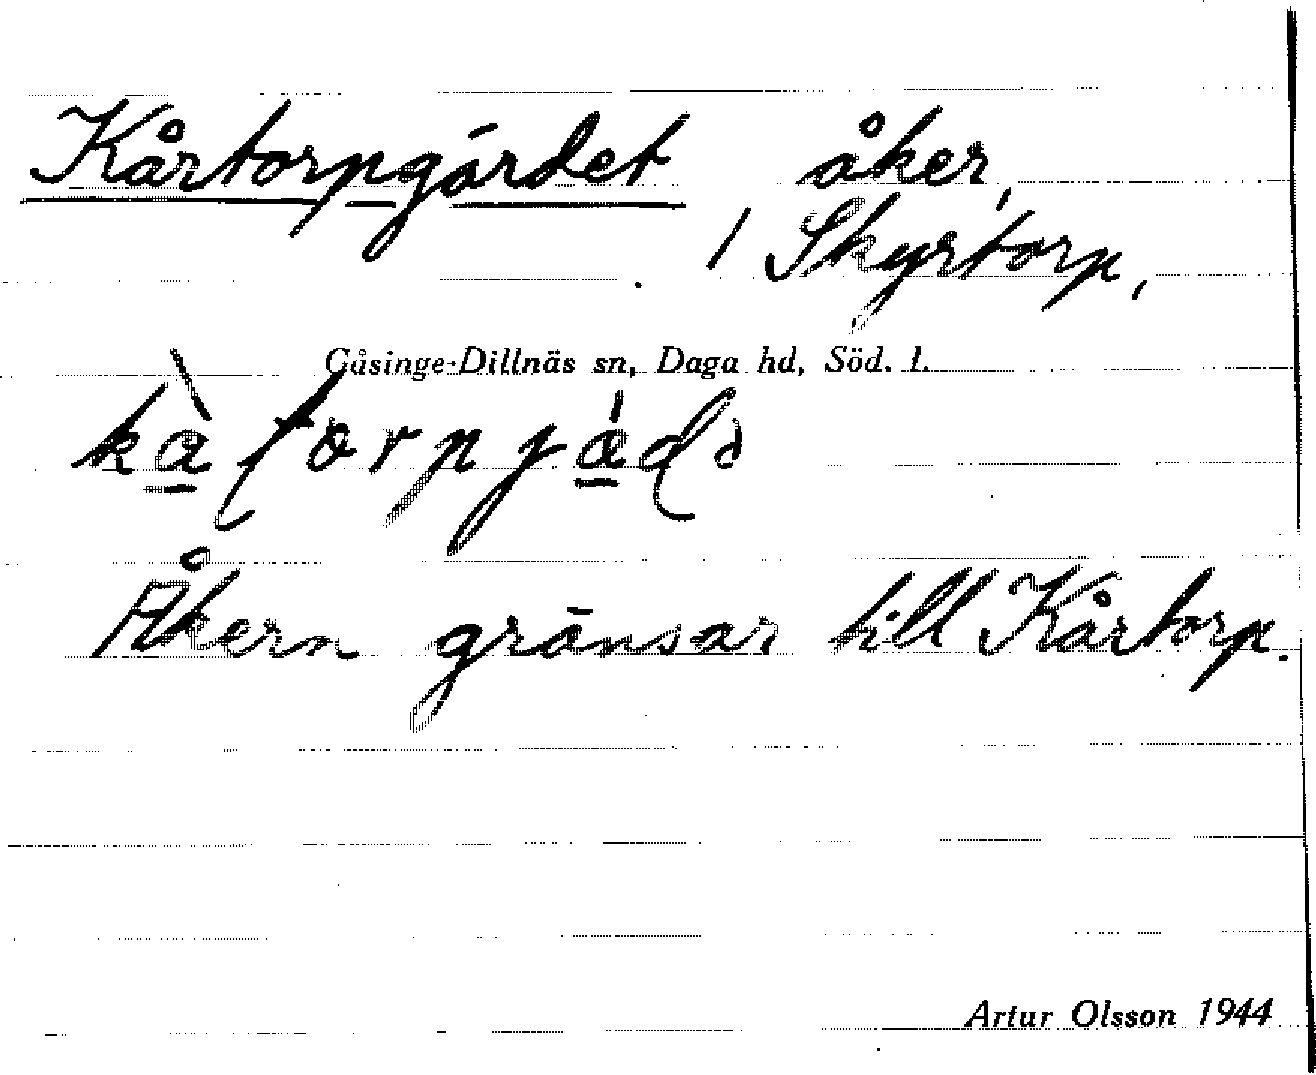 Kårtorpgärdet åker,
1 Skyrtorp,
Gåsinge-Dillnäs sn, Daga hd, Söd. l.
Åkern gränsar till Kårtorp.
Artur Olsson 1944